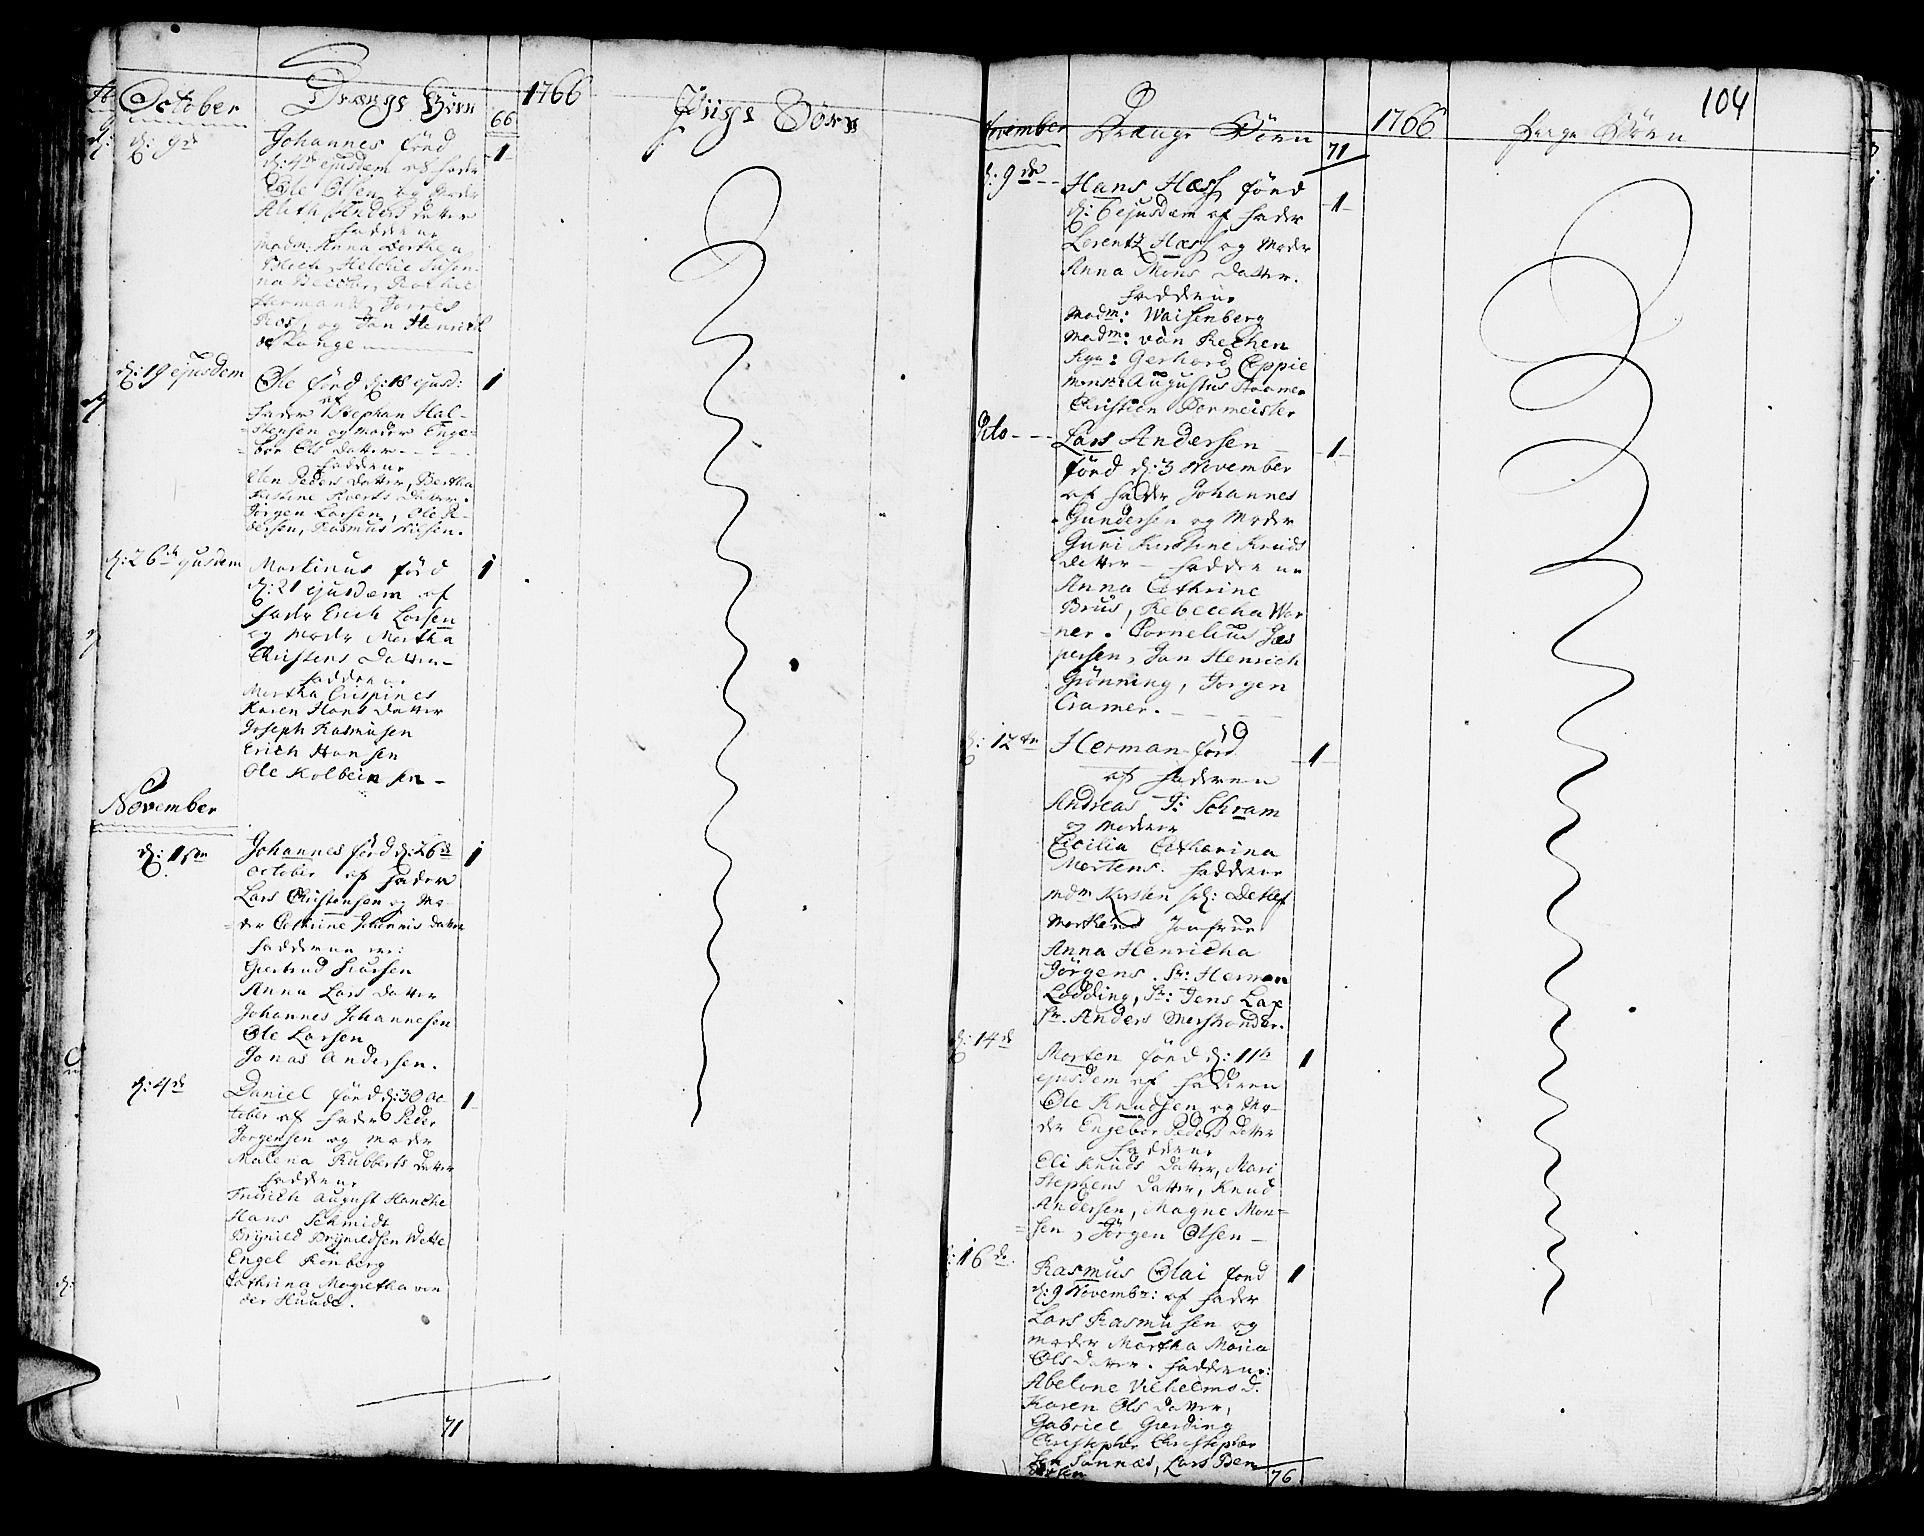 October
Drænge Börn
66
1766
Pige Börn
d: 9de
Johannes född
1
d: 4de ejusdem af fader
Ole Olsen og Moder
Anders datter
Faddere
Madm: Anna Dorthea
Hermans, Torres
Ros, og Jan Henrich
de Lange
d: 19 ejusdem
Ole född d: 18 ejusd:
1
af
Fader Stephan Hal-
stensen og Moder Enge-
bor Ols datter
Faddere
Elen Peders datter, Bertha
datter
Jörgen Larsen, Ole
dersen, Rasmus Nilsen.
d: 26de ejusdem
Martinus föd
1
d: 21 ejusdem af
fader Erich Larsen
og Moder Martha
Christens datter
Faddere
Martha Crispines
Karen Hans datter
Joseph Rasmusen
Erich Hansen
Ole Kolbeinsen
November
d: 1ste
Johannes född d: 26de
1
October af fader
Lars Christensen og Mo-
der Cathrine Johannis datter
Faddere
Giertrud
Anna Lars datter
Johannes Johannesen
Ole Larsen
Jonas Andersen.
d: 4de
Daniel född d: 30 Oc
1
tober af fader Peder
Jörgensen og moder
Malena Rubberts datter
Faddere
Fridrich August Hanche
Hans Schmidt
Brynild Brynildsen Wette
Engel Rönberg
Cathrina Magretha von
der Huude.
71
November
Drænge Börn
71
1766
Pige Börn
104
d: 9de
Hans Hess född
1
d: 6 ejusdem af fader
Lorentz Hess og Moder
Anna Mons datter.
Faddere
Madm: Waisenberg
Madm: von Rechen
Sign: Gerhard Eppie
Mons: Augustus Stramer
Christian Dormeister
Dito
Lars Andersen
1
född d: 3 November
af fader Johannes
Gundersen og Moder
Guri Kirstine Knuds
datter - Faddere
Anna Cathrine
Brus, Rebeccha Wer
ner. Cornelius Jæs
persen, Jan Henrich
Grönning, Jörgen
Cramer.
d: 12te
Herman född
1
af faderen
Andreas J: Schram
og Moder
Cicilia Catharina
Mertens. Faddere
Mdm Kirsten Detlef
Jomfrue
Anna Henricha
Jörgens. Sr: Herman
Lödding, Sr: Jens Lax
Sr. Anders
d: 14de
Morten född d: 11te
1
ejusdem af faderen
Ole Knudsen og Mo-
der Engebor Peders datter
Faddere
Eli Knuds datter, Mari
Stephens datter, Knud
Andersen, Magne Mon-
sen, Jörgen Olsen
16de
Rasmus Olai född
1
d: 9 Novembr: af fader
Lars Rasmusen og
moder Martha Maria
Ols datter. Faddere:
Abelone Vilhelms d.
Karen Ols datter,
Gabriel Gierding
Christopher Christopher
sen Sannæs, Lars Ben
76